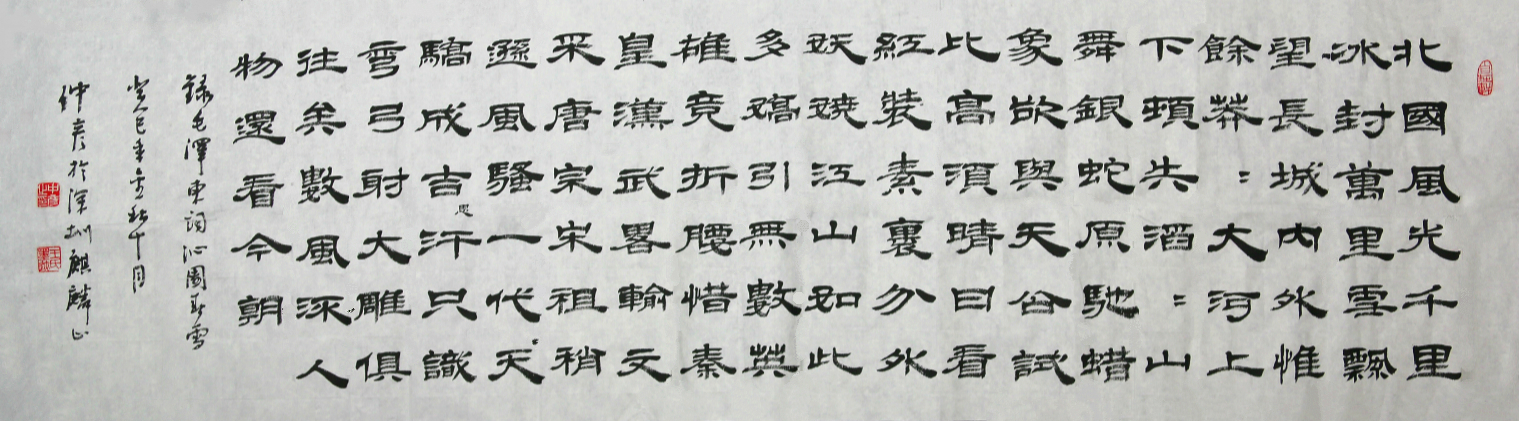 北國風光千里
冰封萬里雪飄
望長城內外惟
餘莽〻大河上
下頓失滔〻山
舞銀蛇原馳蜡
象欲與天公試
比高須晴日看
紅裝素裹分外
妖嬈江山如此
多嬌引無數英
雄竟折腰惜秦
皇漢武畧輸文
采唐宗宋祖稍
遜風騷一代天
驕成吉思汗只識
彎弓射大雕俱
往矣數風流人
物還看今朝
錄毛澤東詞沁園春雪
癸巳年金秋十月
於深圳麒麟山